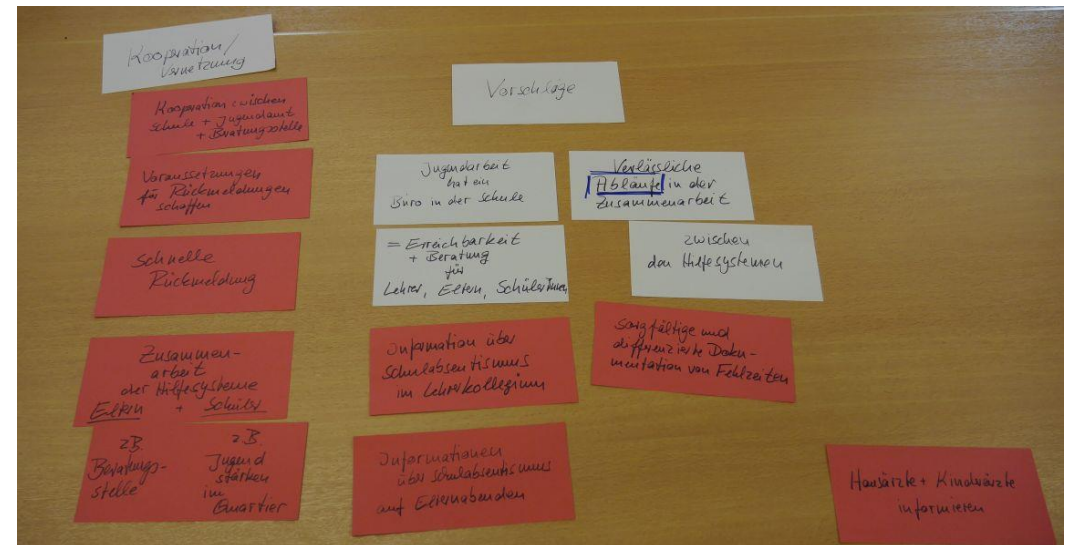 Kooperation/
Vernetzung
Kooperation zwischen
Schule + Jugendamt
+ Beratungsstelle
Voraussetzungen
für Rückmeldungen
schaffen
Schnelle
Rückmeldung
Zusammen-
arbeit
der Hilfesysteme
Eltern + Schüler
z.B.
Beratungs-
stelle
z.B.
Jugend
stärken
im
Quartier
Vorschläge
Jugendarbeit
hat ein
Büro in der Schule
= Erreichbarkeit
+ Beratung
für
Lehrer, Eltern, SchülerInnen
Information über
Schulabsentismus
im Lehrerkollegium
Informationen
über Schulabsentismus
auf Elternabenden
Verlässliche
Abläufe in der
Zusammenarbeit
zwischen
den Hilfesystemen
sorgfältige und
differenzierte Doku-
mentation von Fehlzeiten
Hausärzte + Kinderärzte
informieren